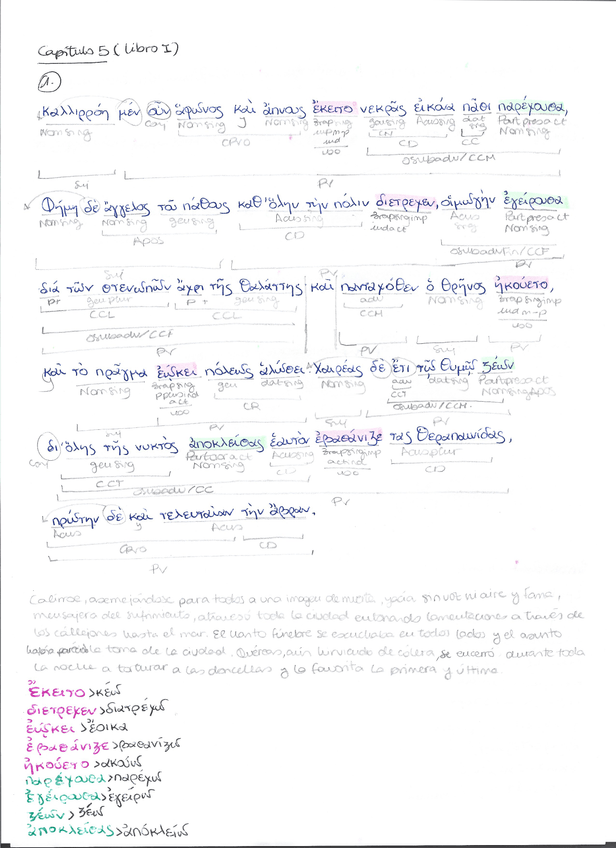 Capítulo 5 (Libro I)
1.
Καλλιρρόη μὲν οὖν ἄφωνος καὶ ἄπνους ἔκειτο νεκρᾶς εἰκόνα πᾶσι παρέχουσα,
Nom sing Conj Nom sing y Nom sing 3ªp sing imp m-p ind gen sing Ac sing dat Part pres act Nom sing
CPvo CN CD CC
O subadv / CCM
Suj PV
Φήμη δὲ ἄγγελος τοῦ πάθους καθ' ὅλην τὴν πόλιν διέτρεχεν, οἰμωγὴν ἐγείρουσα
Nom sing Nom sing gen sing Ac sing 3ªp sing imp ind act Ac sing Part pres act Nom sing
Apos CD
Suj PV
διὰ τῶν στενωπῶν ἄχρι τῆς θαλάττης καὶ πανταχόθεν ὁ θρῆνος ἠκούετο,
P + gen plur P + gen sing adv Nom sing 3ªp sing imp ind m-p
CCL CCL CCM
PV PV Suj PV
καὶ τὸ πρᾶγμα ἐῴκει πόλεως ἁλώσει. Χαιρέας δὲ ἔτι τῷ θυμῷ ζέων
Nom sing gen dat sing Nom sing adv dat sing Part pres act Nom sing
CR CCT
Suj PV Suj PV
δι' ὅλης τῆς νυκτὸς ἀποκλείσας ἑαυτὸν ἐβασάνιζε τὰς θεραπαινίδας,
gen sing Nom sing Ac sing 3ªp sing imp act ind Ac plur
CCT CD CD
PV
πρώτην δὲ καὶ τελευταίαν τὴν ἅβραν.
Ac y Ac
CPvo CD
PV
Calírroe, asemejándose para todos a una imagen de muerte, yacía sin voz ni aire y Fama,
mensajera del sufrimiento, atravesó toda la ciudad entonando lamentaciones a través de
los callejones hasta el mar. El llanto fúnebre se escuchaba en todos lados y el asunto
la toma de la ciudad. Quéreas, aún hirviendo de cólera, se encerró durante toda
la noche a torturar a las doncellas y la favorita la primera y última.
ἔκειτο > κέω
διέτρεχεν > διατρέχω
ἐῴκει > ἔοικα
ἐβασάνιζε > βασανίζω
ἠκούετο > ἀκούω
παρέχουσα > παρέχω
ἐγείρουσα > ἐγείρω
ζέων > ζέω
ἀποκλείσας > ἀποκλείω